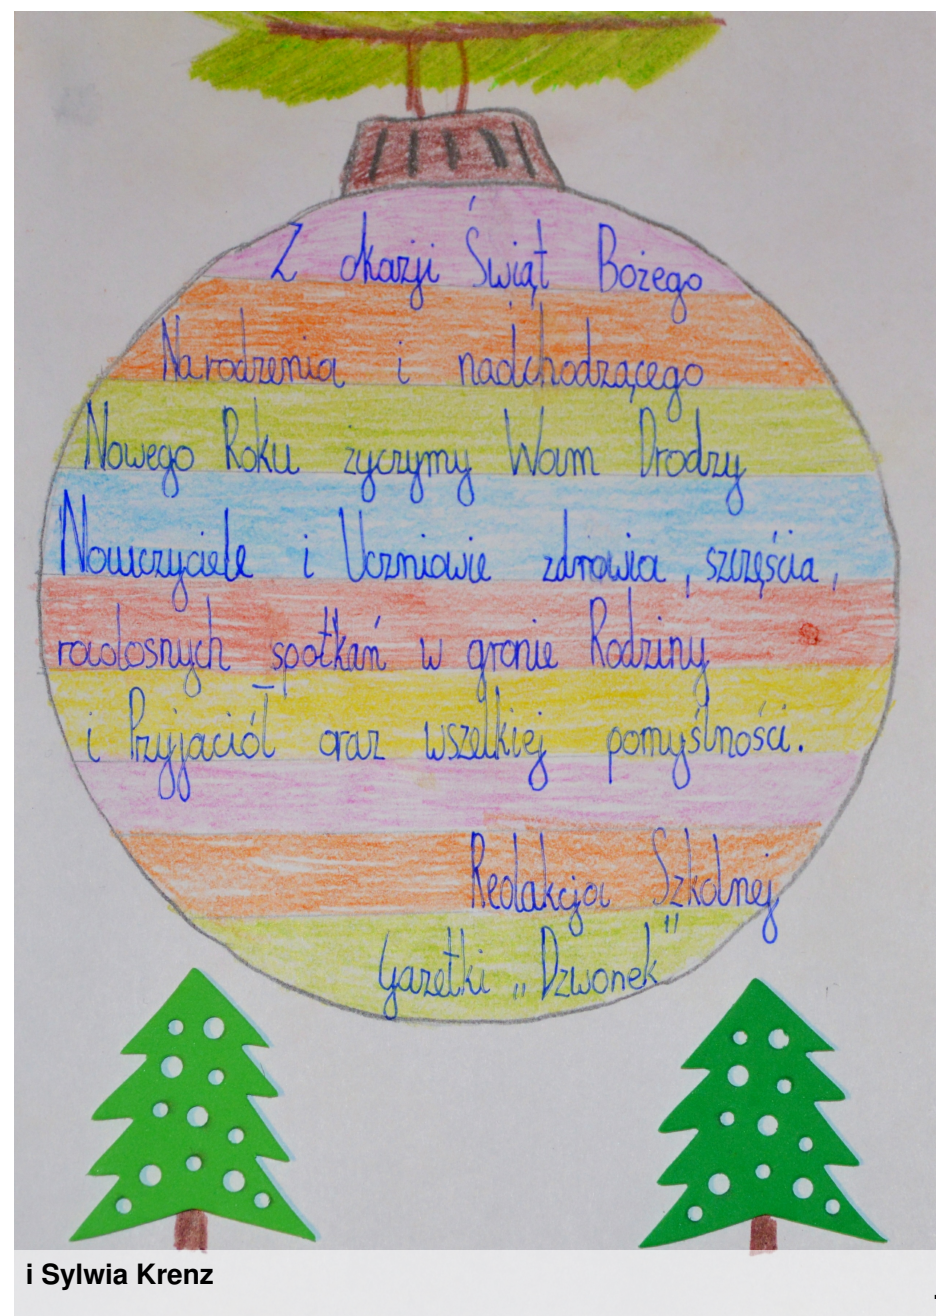 Z okazji Świąt Bożego
Narodzenia i nadchodzącego
Nowego Roku życzymy Wam Drodzy
Nauczyciele i Uczniowie zdrowia, szczęścia,
radosnych spotkań w gronie Rodziny
i Przyjaciół oraz wszelkiej pomyślności.
Redakcja Szkolnej
Gazetki „Dzwonek"
i Sylwia Krenz